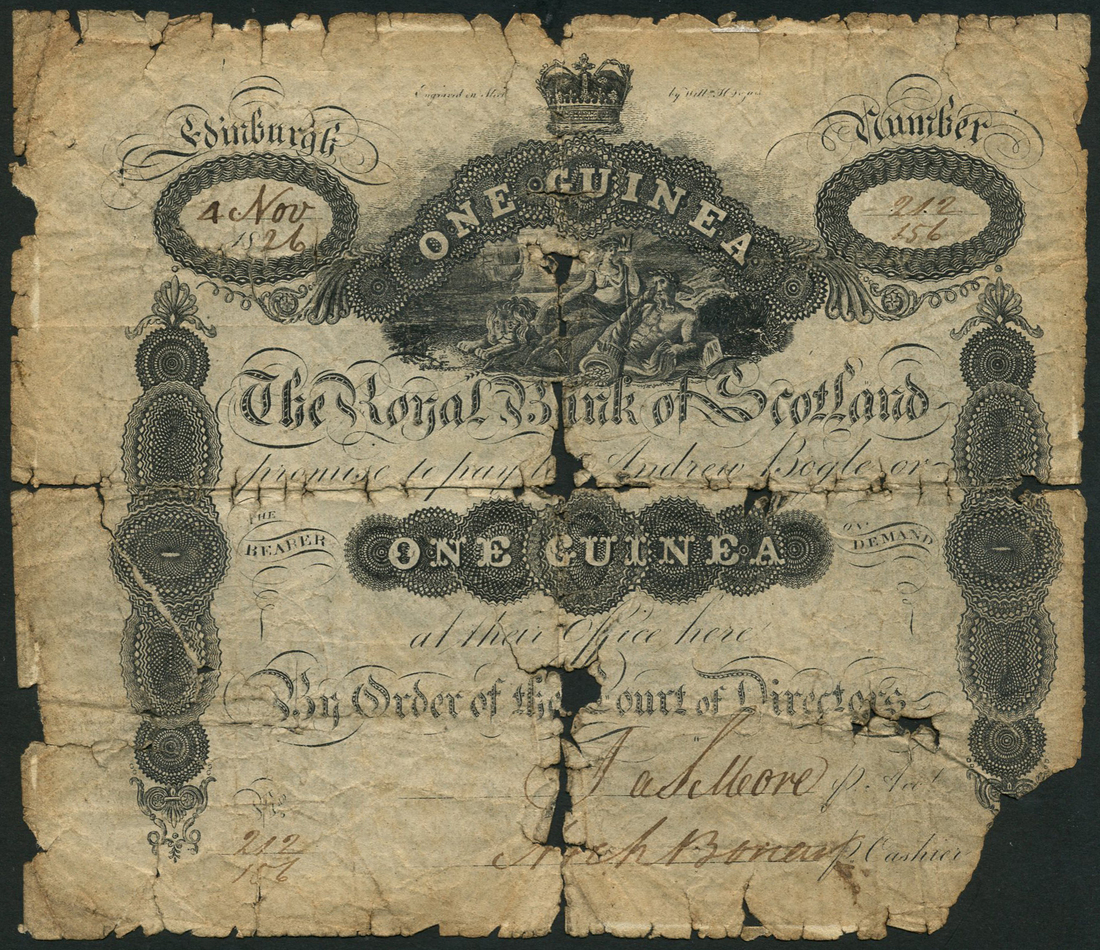 Engraved on Steel by Will. H. Lizars
Edinburgh
Number
4 Nov
1826
212
156
ONE GUINEA
The Royal Bank of Scotland
promise to pay to Andrew Bogle, or
THE BEARER
ONE GUINEA
ON DEMAND
at their Office here
By Order of the Court of Directors
Jas Moore p. Acct
No
212
156
Arch Bonar p. Cashier